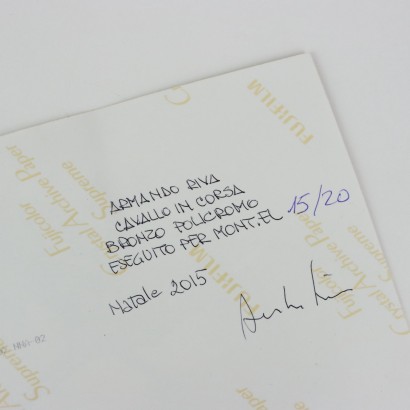 ARMANDO RIVA
CAVALLO IN CORSA
BRONZO POLICROMO
ESEGUITO PER MONT.EL 15/20
Natale 2015
FUJIFILM
Fujicolor
Crystal Archive Paper
Supreme
FUJIFILM
Fujicolor
Crystal Archive Paper
Supreme
FUJIFILM